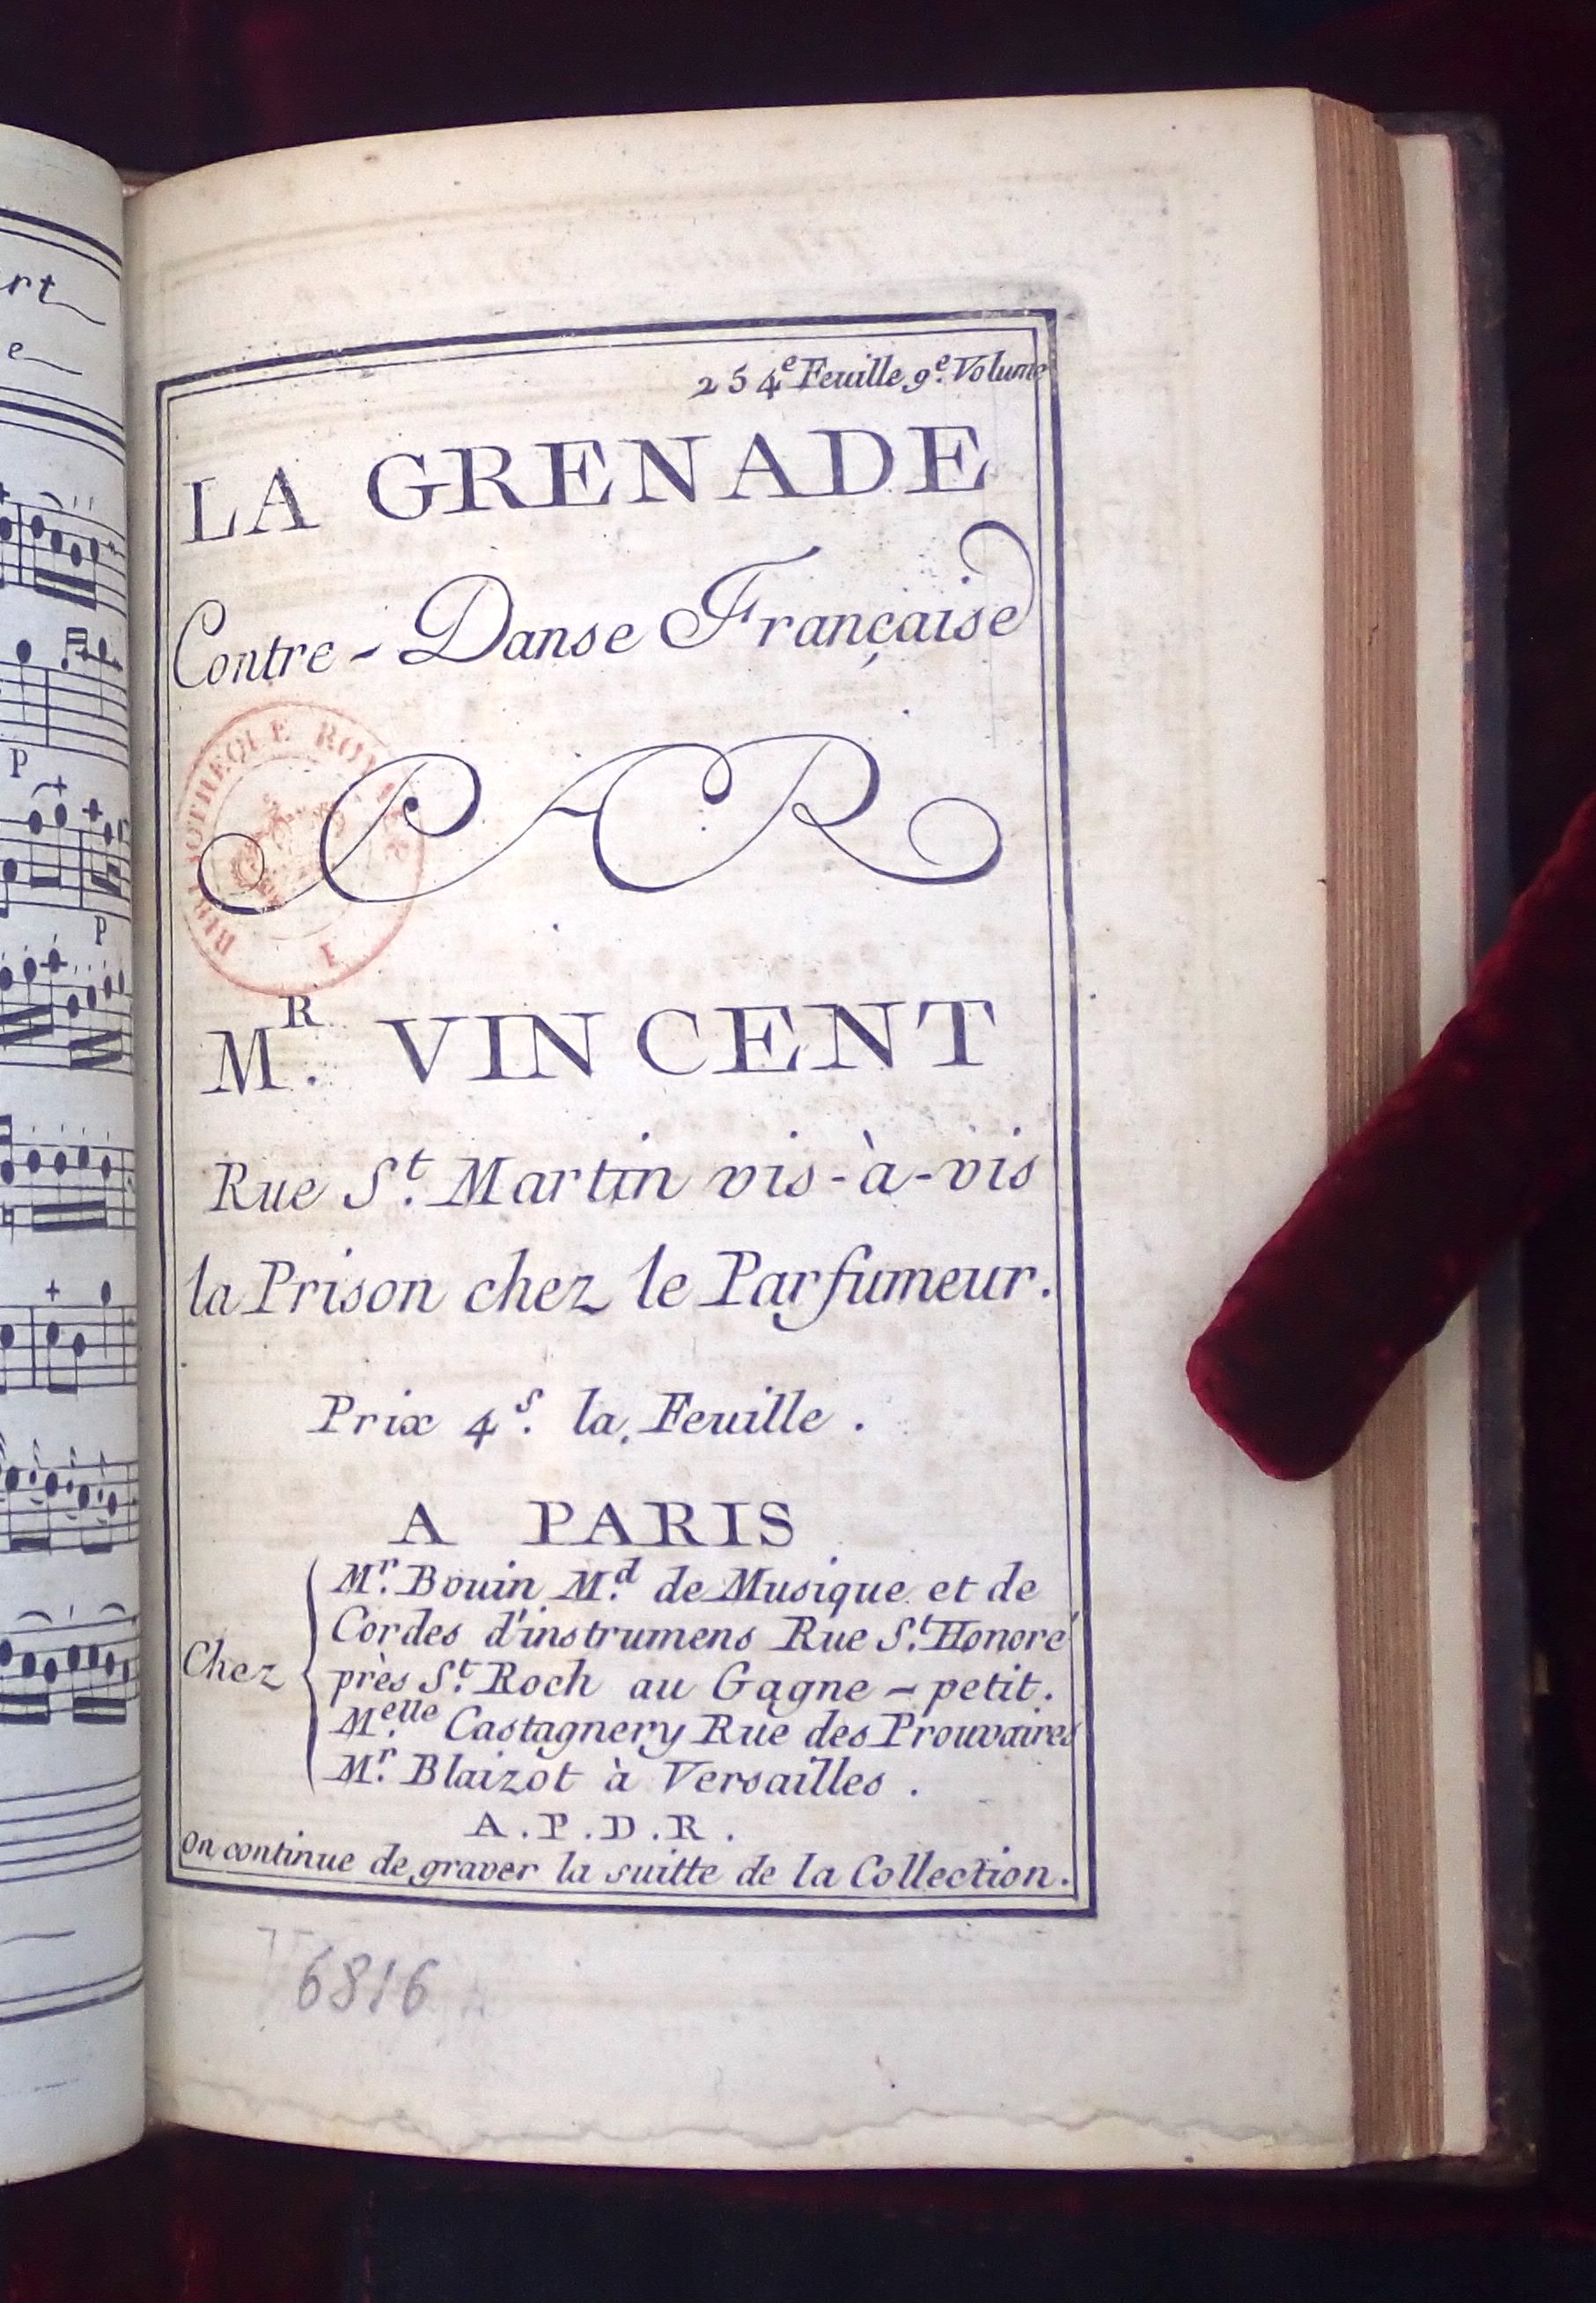 254e Feuille 9e. Volume
LA GRENADE
Contre - Danse Française
PAR
MR. VINCENT
Rue St. Martin vis-à-vis
la Prison chez le Parfumeur.
Prix 4s. la Feuille.
A PARIS
Chez
Mr. Bouin Md. de Musique et de
Cordes d'instrumens Rue St. Honoré
près St. Roch au Gagne-petit.
Melle. Castagnery Rue des Prouvaires
Mr. Blaizot à Versailles.
A.P.D.R.
On continue de graver la suitte de la Collection.
6816
P
P